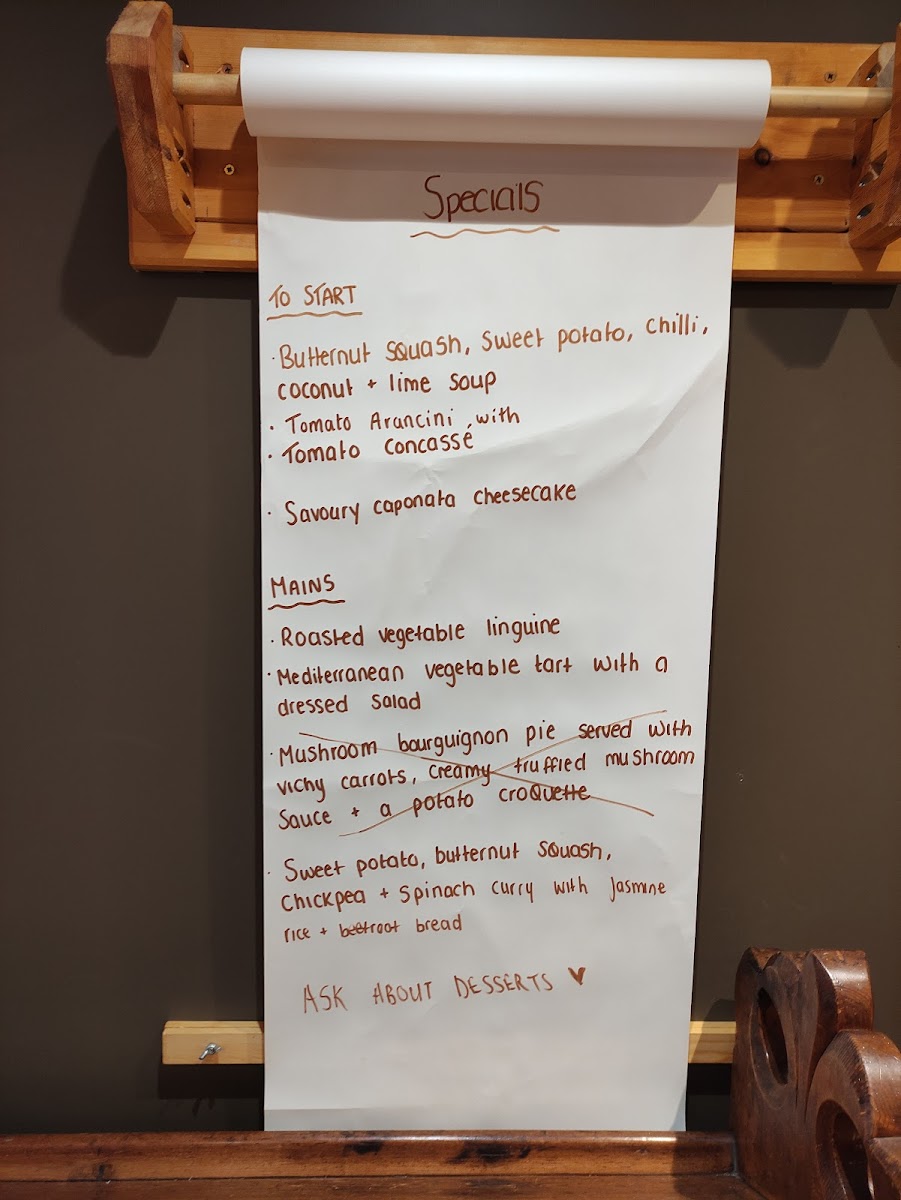 Specials
TO START
· Butternut squash, sweet potato, chilli,
coconut + lime soup
· Tomato Arancini with
· Tomato concasse
· Savoury caponata cheesecake
MAINS
· Roasted vegetable linguine
· Mediterranean vegetable tart with a
dressed salad
· Mushroom bourguignon pie served with
vichy carrots, creamy truffled mushroom
sauce + a potato croquette
· Sweet potato, butternut squash,
chickpea + spinach curry with jasmine
rice + beetroot bread
ASK ABOUT DESSERTS ♥